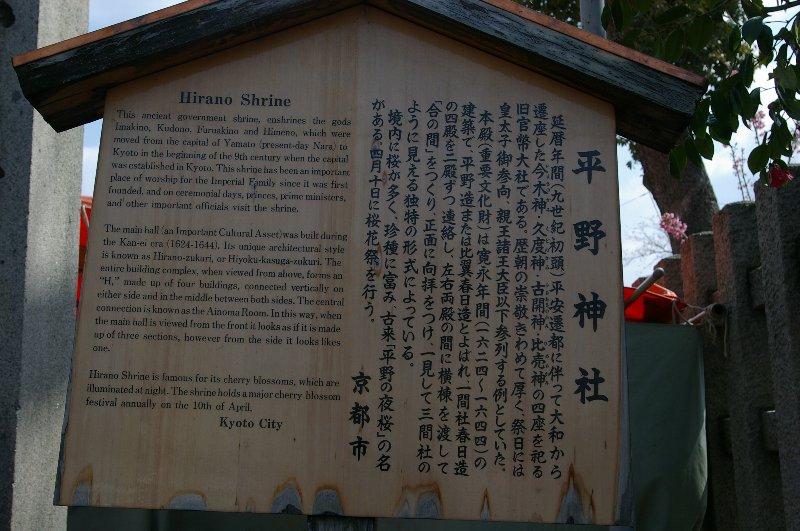 Hirano Shrine
This ancient government shrine, enshrines the gods
Imakino, Kudono, Furuakino and Himeno, which were
moved from the capital of Yamato (present-day Nara) to
Kyoto in the beginning of the 9th century when the capital
was established in Kyoto. This shrine has been an important
place of worship for the Imperial Family since it was first
founded, and on ceremonial days, princes, prime ministers,
and other important officials visit the shrine.
The main hall (an Important Cultural Asset) was built during
the Kan-ei era (1624-1644). Its unique architectural style
is known as Hirano-zukuri, or Hiyoku-kasuga-zukuri. The
entire building complex, when viewed from above, forms an
"H," made up of four buildings, connected vertically on
either side and in the middle between both sides. The central
connection is known as the Ainoma Room. In this way, when
the main hall is viewed from the front it looks as if it is made
up of three sections, however from the side it looks likes
one.
Hirano Shrine is famous for its cherry blossoms, which are
illuminated at night. The shrine holds a major cherry blossom
festival annually on the 10th of April.
Kyoto City
平野神社
延暦年間(九世紀初頭)平安遷都に伴って大和から
遷座した今木神・久度神・古開神・比売神の四座を祀る
旧官幣大社である。歴朝の崇敬きわめて厚く、祭日には
皇太子御参向、親王諸王大臣以下参列する例としていた。
本殿(重要文化財)は寛永年間(一六二四〜一六四四)の
建築で、平野造または比翼春日造とよばれ、一間社春日造
の四殿を二殿ずつ連絡し、左右両殿の間に横棟を渡して
「合の間」をつくり、正面に向拝をつけ、一見して三間社の
ように見える独特の形式によっている。
境内に桜が多く、珍種に富み、古来「平野の夜桜」の名
がある。四月十日に桜花祭を行う。
京都市